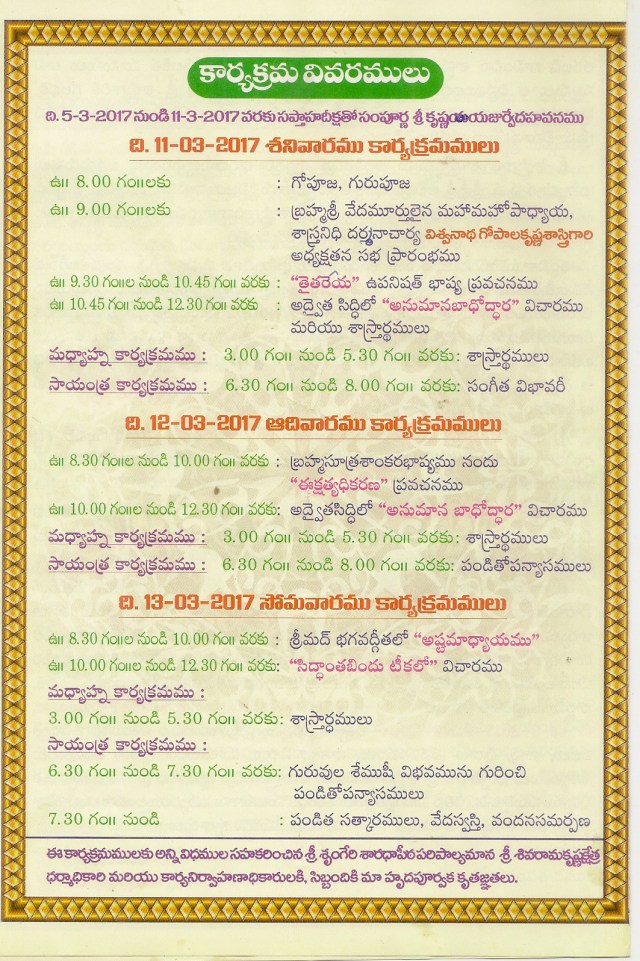 కార్యక్రమ వివరములు
ది. 5-3-2017 నుండి 11-3-2017 వరకు సప్తాహదీక్షతో సంపూర్ణ శ్రీ కృష్ణయజుర్వేదహవనము
ది. 11-03-2017 శనివారము కార్యక్రమములు
ఉ॥ 8.00 గం॥లకు : గోపూజ, గురుపూజ
ఉ॥ 9.00 గం॥లకు : బ్రహ్మశ్రీ వేదమూర్తులైన మహామహోపాధ్యాయ,
శాస్త్రనిధి దర్శనాచార్య విశ్వనాథ గోపాలకృష్ణశాస్త్రిగారి
అధ్యక్షతన సభ ప్రారంభము
ఉ॥ 9.30 గం॥ల నుండి 10.45 గం॥ వరకు : “తైతరేయ” ఉపనిషత్ భాష్య ప్రవచనము
ఉ॥ 10.45 గం॥ల నుండి 12.30 గం॥ వరకు : అద్వైత సిద్ధిలో “అనుమానబాధోద్ధార” విచారము
మరియు శాస్త్రార్థములు
మధ్యాహ్న కార్యక్రమము : 3.00 గం॥ నుండి 5.30 గం॥ వరకు: శాస్త్రార్థములు
సాయంత్ర కార్యక్రమము : 6.30 గం॥ నుండి 8.00 గం॥ వరకు: సంగీత విభావరీ
ది. 12-03-2017 ఆదివారము కార్యక్రమములు
ఉ॥ 8.30 గం॥ల నుండి 10.00 గం॥ వరకు : బ్రహ్మసూత్రశాంకరభాష్యము నందు
“ఈక్షత్యధికరణ” ప్రవచనము
ఉ॥ 10.00 గం॥ల నుండి 12.30 గం॥ వరకు: అద్వైతసిద్ధిలో “అనుమాన బాధోద్ధార” విచారము
మధ్యాహ్న కార్యక్రమము : 3.00 గం॥ నుండి 5.30 గం॥ వరకు: శాస్త్రార్థములు
సాయంత్ర కార్యక్రమము : 6.30 గం॥ నుండి 8.00 గం॥ వరకు: పండితోపన్యాసములు
ది. 13-03-2017 సోమవారము కార్యక్రమములు
ఉ॥ 8.30 గం॥ల నుండి 10.00 గం॥ వరకు : శ్రీమద్ భగవద్గీతలో “అష్టమాధ్యాయము”
ఉ॥ 10.00 గం॥ల నుండి 12.30 గం॥ వరకు: “సిద్ధాంతబిందు టీకలో” విచారము
మధ్యాహ్న కార్యక్రమము :
3.00 గం॥ నుండి 5.30 గం॥ వరకు: శాస్త్రార్థములు
సాయంత్ర కార్యక్రమము :
6.30 గం॥ నుండి 7.30 గం॥ వరకు: గురువుల శేముషీ విభవమును గురించి
పండితోపన్యాసములు
7.30 గం॥ నుండి : పండిత సత్కారములు, వేదస్వస్తి, వందనసమర్పణ
ఈ కార్యక్రమములకు అన్నివిధముల సహకరించిన శ్రీ శృంగేరి శారధాపీఠపరిపాల్యమాన శ్రీ శివరామకృష్ణక్షేత్ర
ధర్మాధికారి మరియు కార్యనిర్వాహణాధికారులకి, సిబ్బందికి మా హృదపూర్వక కృతజ్ఞతలు.